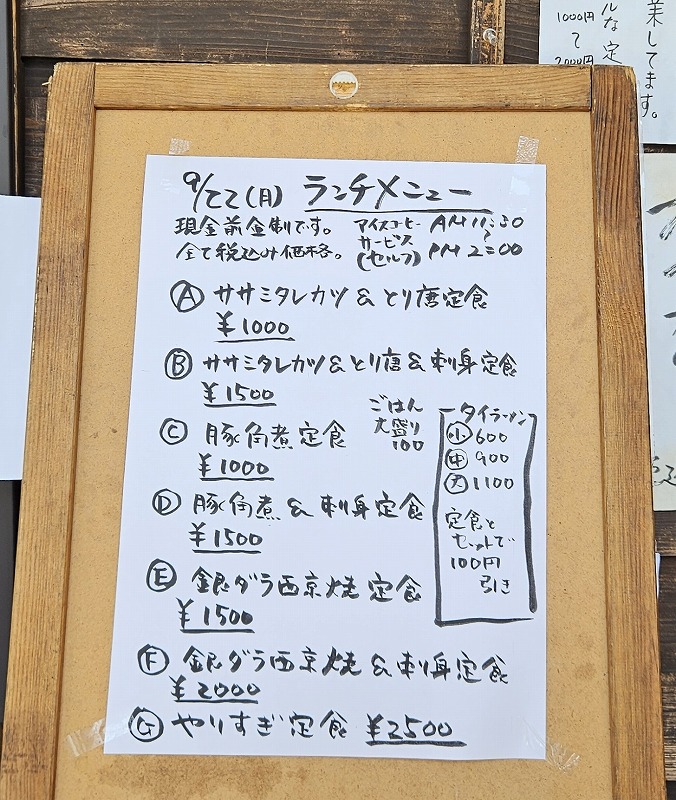 1000円
〜
2000円
ルな定
業してます。
9/22(月) ランチメニュー
現金前金制です。
全て税込み価格。
アイスコーヒー
サービス
(セルフ)
AM 11:30
〜
PM 2:00
Ⓐ ササミタレカツ & とり唐定食
¥1000
Ⓑ ササミタレカツ & とり唐 & 刺身定食
¥1500
Ⓒ 豚角煮定食
¥1000
ごはん
大盛り
100
Ⓓ 豚角煮 & 刺身定食
¥1500
Ⓔ 銀ダラ西京焼定食
¥1500
Ⓕ 銀ダラ西京焼 & 刺身定食
¥2000
Ⓖ やりすぎ定食 ¥2500
タイラーメン
小 600
中 900
大 1100
定食と
セットで
100円
引き